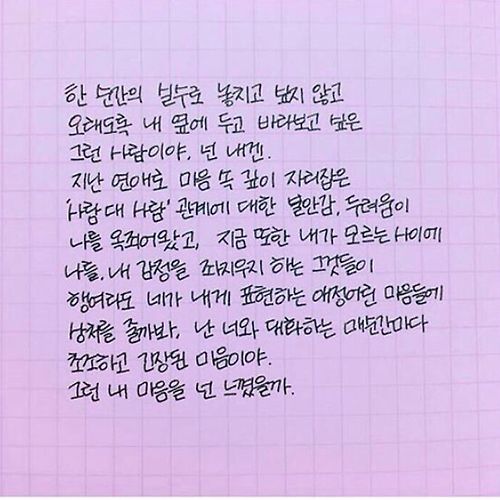 한 순간의 실수로 놓치고 싶지 않고
오래도록 내 옆에 두고 바라보고 싶은
그런 사람이야, 넌 내겐.
지난 연애로 마음 속 깊이 자리잡은
'사람 대 사람' 관계에 대한 불안감, 두려움이
나를 옥죄어왔고, 지금 또한 내가 모르는 사이에
나를, 내 감정을 좌지우지 하는 그것들이
행여라도 네가 내게 표현하는 애정어린 마음들에
상처를 줄까봐, 난 너와 대화하는 매순간마다
초조하고 긴장된 마음이야.
그런 내 마음을 넌 느꼈을까.